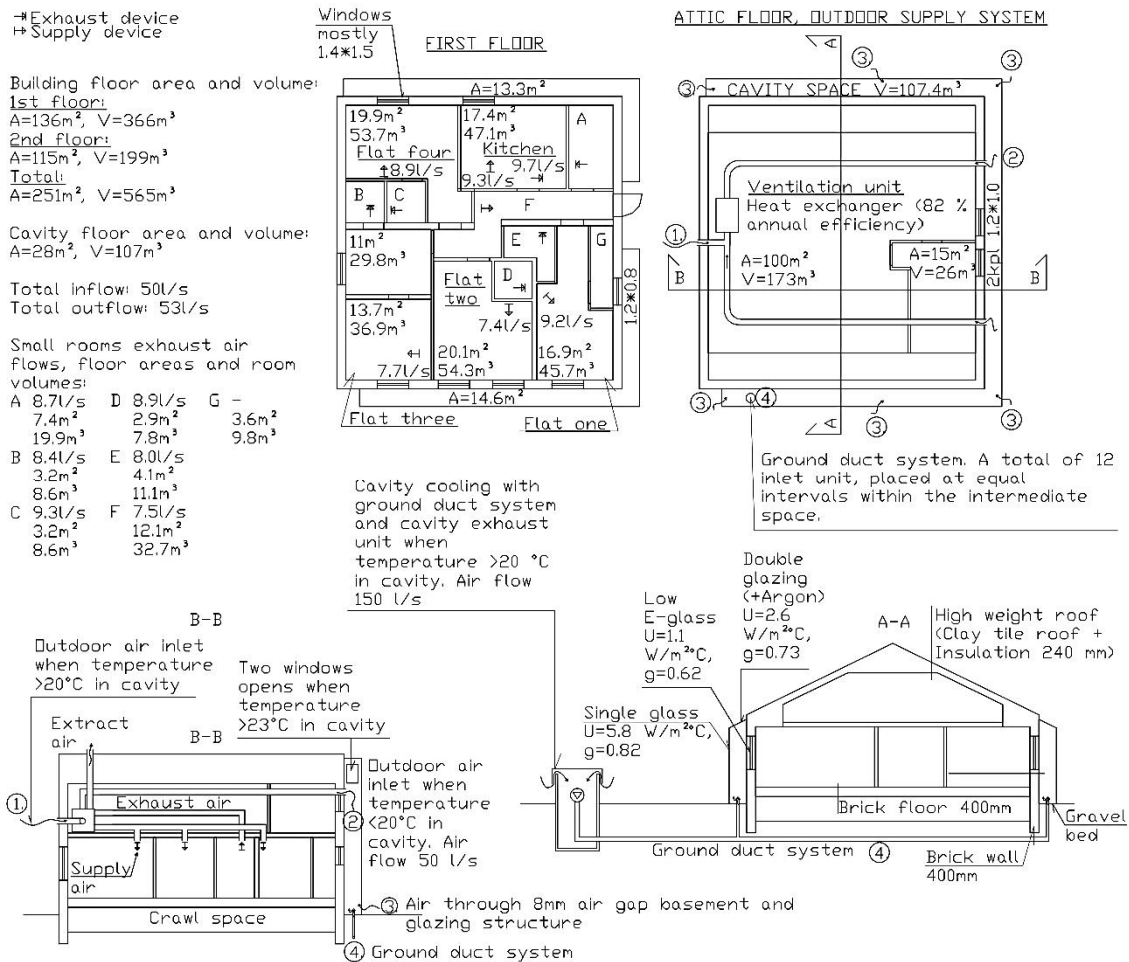 Exhaust device
Supply device
Building floor area and volume:
1st floor:
A=136m², V=366m³
2nd floor:
A=115m², V=199m³
Total:
A=251m², V=565m³
Cavity floor area and volume:
A=28m², V=107m³
Total inflow: 50l/s
Total outflow: 53l/s
Small rooms exhaust air
flows, floor areas and room
volumes:
A 8.7l/s D 8.9l/s G -
7.4m² 2.9m² 3.6m²
19.9m³ 7.8m³ 9.8m³
B 8.4l/s E 8.0l/s
3.2m² 4.1m²
8.6m³ 11.1m³
C 9.3l/s F 7.5l/s
3.2m² 12.1m²
8.6m³ 32.7m³
Windows
mostly
1.4*1.5
FIRST FLOOR
A=13.3m²
19.9m²
53.7m³
Flat four
8.9l/s
17.4m²
47.1m³
Kitchen
9.7l/s
9.3l/s
A
B
C
F
E
G
D
11m²
29.8m³
Flat
two
13.7m²
36.9m³
7.7l/s
7.4l/s
20.1m²
54.3m³
9.2l/s
16.9m²
45.7m³
1.2*0.8
A=14.6m²
Flat three
Flat one
ATTIC FLOOR, OUTDOOR SUPPLY SYSTEM
A
3
3
3
CAVITY SPACE V=107.4m³
2
Ventilation unit
Heat exchanger (82 %
annual efficiency)
1.
2kpl 1.2*1.0
A=100m²
V=173m³
A=15m²
V=26m³
B
B
3
4
3
3
A
Ground duct system. A total of 12
inlet unit, placed at equal
intervals within the intermediate
space.
Cavity cooling with
ground duct system
and cavity exhaust
unit when
temperature >20 °C
in cavity. Air flow
150 l/s
B-B
Outdoor air inlet
when temperature
>20°C in cavity
Two windows
opens when
temperature
>23°C in cavity
Extract
air
B-B
Outdoor air
inlet when
temperature
<20°C in
cavity. Air
flow 50 l/s
1.
Exhaust air
2
Supply
air
Crawl space
3 Air through 8mm air gap basement and
glazing structure
4. Ground duct system
Low
E-glass
U=1.1
W/m²°C,
g=0.62
Double
glazing
(+Argon)
U=2.6
W/m²°C,
g=0.73
A-A
High weight roof
(Clay tile roof +
Insulation 240 mm)
Single glass
U=5.8 W/m²°C,
g=0.82
Brick floor 400mm
Gravel
bed
Ground duct system 4
Brick wall
400mm